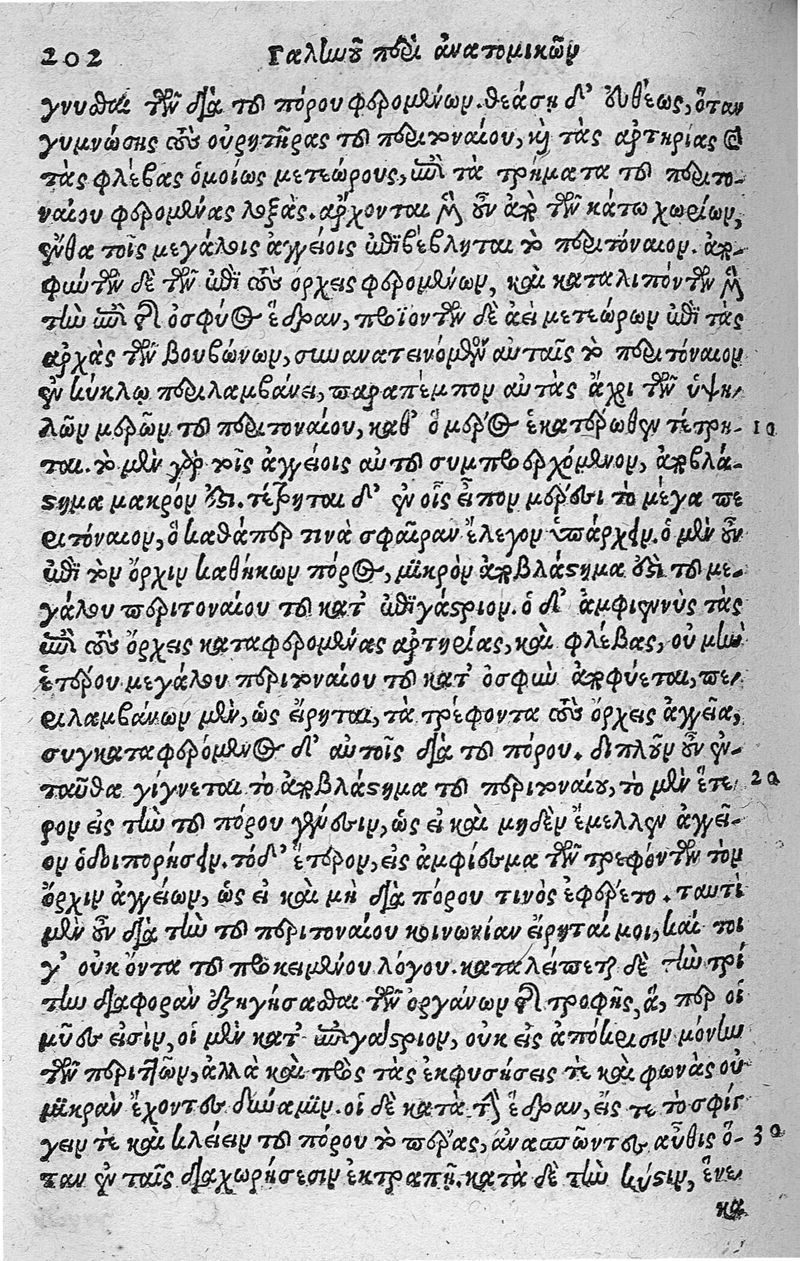 202 Γαληνοῦ περὶ ἀνατομικῶν
γνυσθαι τῶν διὰ τοῦ πόρου φερομένων. θεάσῃ δ᾽ εὐθέως, ὅταν
γυμνώσῃς τοὺς οὐρητῆρας τοῦ περιτοναίου, καὶ τὰς ἀρτηρίας καὶ
τὰς φλέβας ὁμοίως μετεώρους, ἐπὶ τὰ τρήματα τοῦ περιτο-
ναίου φερομένας λοξάς. ἄρχονται μὲν οὖν ἀπὸ τῶν κάτω χωρίων,
ἔνθα τοῖς μεγάλοις ἀγγείοις ἐπιβέβληται τὸ περιτόναιον. ἀπο-
φυέντων δὲ τῶν ἐπὶ τοὺς ὄρχεις φερομένων, καὶ καταλιπόντων μὲν
τὴν ἐπὶ τῆς ὀσφύος ἕδραν, προϊόντων δὲ ἀεὶ μετεώρων ἐπὶ τὰς
ἀρχὰς τῶν βουβώνων, συνανατεινόμενον αὐταῖς τὸ περιτόναιον
ἐν κύκλῳ περιλαμβάνει, παραπέμπον αὐτὰς ἄχρι τῶν ὑψη-
λῶν μερῶν τοῦ περιτοναίου, καθ᾽ ὃ μέρος ἑκατέρωθεν τέτρη- 10
ται. τὸ μὲν γὰρ τοῖς ἀγγείοις αὐτοῦ συμπροερχόμενον, ἀποβλά-
στημα μακρόν ἐστι. τέτρηται δ᾽ ἐν οἷς εἶπον μέρεσι τὸ μέγα πε
ριτόναιον, ὃ καθάπερ τινὰ σφαῖραν ἔλεγον ὑπάρχειν. ὁ μὲν οὖν
ἐπὶ τὸν ὄρχιν καθήκων πόρος, μικρὸν ἀποβλάστημα ἐστὶ τοῦ με-
γάλου περιτοναίου τοῦ κατ᾽ ἐπιγάστριον. ὁ δ᾽ ἀμφιεννὺς τὰς
ἐπὶ τοὺς ὄρχεις καταφερομένας ἀρτηρίας, καὶ φλέβας, οὐ μὴν
ἑτέρου μεγάλου περιτοναίου τοῦ κατ᾽ ὀσφὺν ἀποφύεται, πε-
ριλαμβάνων μὲν, ὡς εἴρηται, τὰ τρέφοντα τοὺς ὄρχεις ἀγγεῖα,
συγκαταφερόμενος δ᾽ αὐτοῖς διὰ τοῦ πόρου. διπλοῦν οὖν ἐν-
ταῦθα γίγνεται τὸ ἀποβλάστημα τοῦ περιτοναίου, τὸ μὲν ἕτε- 20
ρον εἰς τὴν τοῦ πόρου γένεσιν, ὡς εἰ καὶ μηδὲν ἔμελλεν ἀγγεῖ-
ον ὁδοιπορήσειν. τὸ δ᾽ ἕτερον, εἰς ἀμφίεσμα τῶν τρεφόντων τὸν
ὄρχιν ἀγγείων, ὡς εἰ καὶ μὴ διὰ πόρου τινὸς ἐφέρετο. ταυτὶ
μὲν οὖν διὰ τὴν τοῦ περιτοναίου κοινωνίαν εἴρηταί μοι, καί τοι
γ᾽ οὐκ ὄντα τοῦ προκειμένου λόγου. καταλείπεται δὲ τὴν τρί
την διαφορὰν ἐξηγήσασθαι τῶν ὀργάνων τῆς τροφῆς, ἅ, περ οἱ
μῦς εἰσὶν, οἱ μὲν κατ᾽ ἐπιγάστριον, οὐκ εἰς ἀπόκρισιν μόνην
τῶν περιττῶν, ἀλλὰ καὶ πρὸς τὰς ἐκφυσήσεις τὲ καὶ φωνὰς οὐ
μικρὰν ἔχοντες δύναμιν. οἱ δὲ κατὰ τὴν ἕδραν, εἴς τε τὸ σφίγ
γειν τὲ καὶ κλείειν τοῦ πόρου τὸ πέρας, ἀνασπῶντες αὖθις ὅ- 30
ταν ἐν ταῖς διαχωρήσεσιν ἐκτραπῇ. κατὰ δὲ τὴν κύστιν, ἕνε-
κα